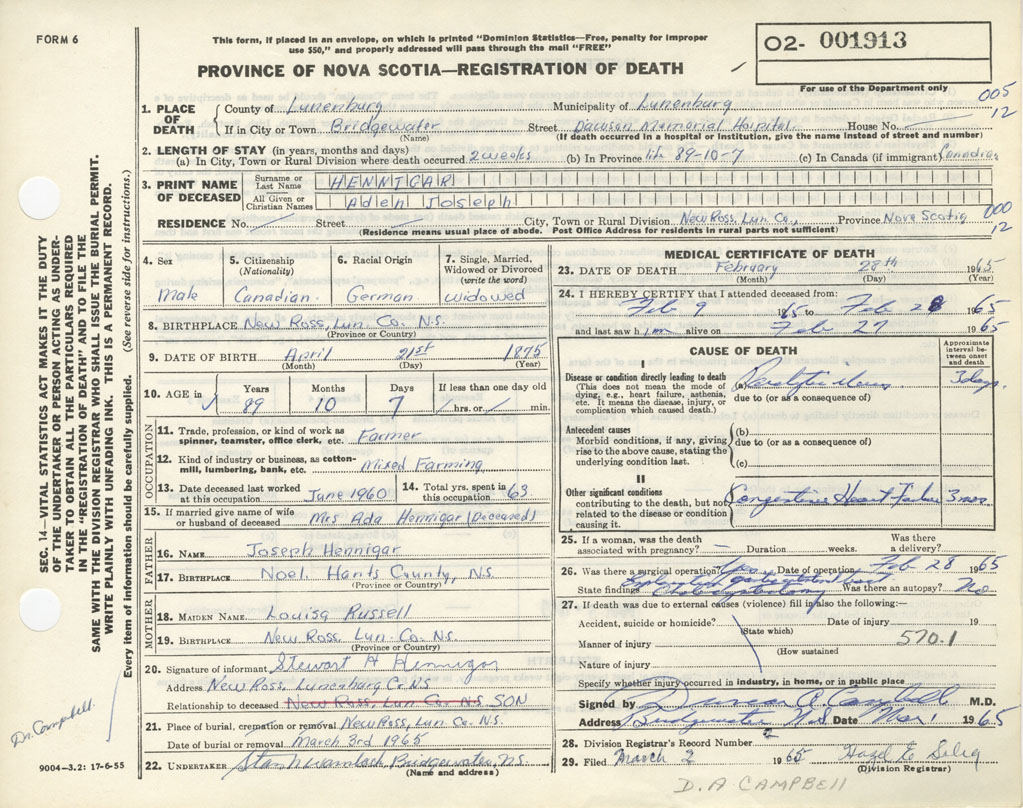 FORM 6
This form, if placed in an envelope, on which is printed "Dominion Statistics—Free, penalty for improper
use $50," and properly addressed will pass through the mail "FREE"
PROVINCE OF NOVA SCOTIA—REGISTRATION OF DEATH
02- 001913
For use of the Department only
005
12
1. PLACE OF DEATH
County of Lunenburg Municipality of Lunenburg
If in City or Town Bridgewater Street Dawson Memorial Hospital House No.
(Name) (If death occurred in a hospital or institution, give the name instead of street and number)
2. LENGTH OF STAY (in years, months and days)
(a) In City, Town or Rural Division where death occurred 2 weeks (b) In Province life 89-10-7 (c) In Canada (if immigrant) Canadian
3. PRINT NAME OF DECEASED
Surname or Last Name HENNIGAR
All Given or Christian Names Aden Joseph
RESIDENCE No. Street City, Town or Rural Division New Ross, Lun. Co., Province Nova Scotia
(Residence means usual place of abode. Post Office Address for residents in rural parts not sufficient)
000
12
4. Sex
Male
5. Citizenship (Nationality)
Canadian
6. Racial Origin
German
7. Single, Married, Widowed or Divorced (write the word)
widowed
8. BIRTHPLACE New Ross, Lun. Co. N.S.
(Province or Country)
9. DATE OF BIRTH April 21st 1875
(Month) (Day) (Year)
10. AGE in Years 89 Months 10 Days 7 If less than one day old hrs. or min.
OCCUPATION
11. Trade, profession, or kind of work as spinner, teamster, office clerk, etc. Farmer
12. Kind of industry or business, as cotton-mill, lumbering, bank, etc. Mixed Farming
13. Date deceased last worked at this occupation June 1960 14. Total yrs. spent in this occupation 63
15. If married give name of wife or husband of deceased Mrs Ada Hennigar (Deceased)
FATHER
16. NAME Joseph Hennigar
17. BIRTHPLACE Noel, Hants County, N.S.
(Province or Country)
MOTHER
18. MAIDEN NAME Louisa Russell
19. BIRTHPLACE New Ross Lun. Co. N.S.
(Province or Country)
20. Signature of informant Stewart A Hennigar
Address New Ross, Lunenburg Co NS
Relationship to deceased New Ross, Lun Co. N.S SON
21. Place of burial, cremation or removal New Ross, Lun Co. N.S.
Date of burial or removal March 3rd 1965
22. UNDERTAKER Bridgewater, N.S.
(Name and address)
MEDICAL CERTIFICATE OF DEATH
23. DATE OF DEATH February 28th 1965
(Month) (Day) (Year)
24. I HEREBY CERTIFY that I attended deceased from:
Feb 9 1965 to Feb 28 1965
and last saw him alive on Feb 27 1965
CAUSE OF DEATH
Approximate interval between onset and death
I
Disease or condition directly leading to death (a) Paralytic ileus 3 days
(This does not mean the mode of dying, e.g., heart failure, asthenia, etc. It means the disease, injury, or complication which caused death.)
due to (or as a consequence of)
Antecedent causes
Morbid conditions, if any, giving rise to the above cause, stating the underlying condition last.
(b)
due to (or as a consequence of)
(c)
II
Other significant conditions contributing to the death, but not related to the disease or condition causing it.
Congestive Heart Failure 3 mos.
25. If a woman, was the death associated with pregnancy? — Duration weeks. Was there a delivery?
26. Was there a surgical operation? Yes Date of operation Feb 28 1965
State findings Was there an autopsy? No
27. If death was due to external causes (violence) fill in also the following:—
Accident, suicide or homicide? Date of injury 19
(State which)
Manner of injury 570.1
(How sustained)
Nature of injury
Specify whether injury occurred in industry, in home, or in public place
Signed by Duncan A. Campbell M.D.
Address Bridgewater N.S. Date Mar 1 1965
28. Division Registrar's Record Number 2
29. Filed March 2 1965 Hazel E
(Division Registrar)
D. A CAMPBELL
SEC. 14—VITAL STATISTICS ACT MAKES IT THE DUTY
OF THE UNDERTAKER OR PERSON ACTING AS UNDER-
TAKER TO OBTAIN ALL THE PARTICULARS REQUIRED
IN THE "REGISTRATION OF DEATH" AND TO FILE THE
SAME WITH THE DIVISION REGISTRAR WHO SHALL ISSUE THE BURIAL PERMIT.
WRITE PLAINLY WITH UNFADING INK. THIS IS A PERMANENT RECORD.
Every item of information should be carefully supplied. (See reverse side for instructions.)
Dr. Campbell.
9004—3.2: 17-6-55